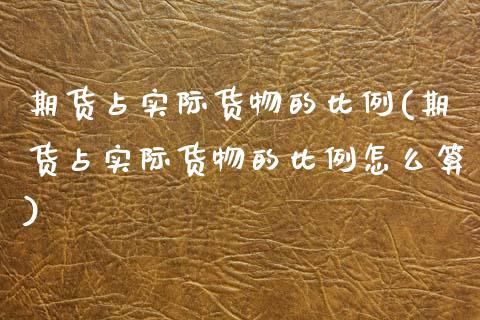 期货占实际货物的比例(期
货占实际货物的比例怎么算
)